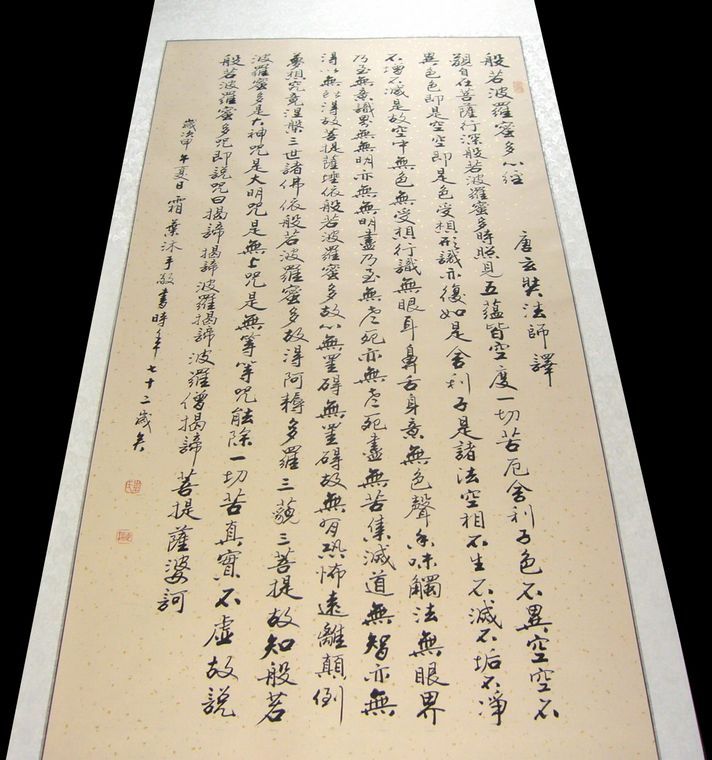 般若波羅蜜多心經 唐玄奘法師譯
觀自在菩薩行深般若波羅蜜多時照見五蘊皆空度一切苦厄舍利子色不異空空不
異色色即是空空即是色受想行識亦復如是舍利子是諸法空相不生不滅不垢不淨
不增不減是故空中無色無受想行識無眼耳鼻舌身意無色聲香味觸法無眼界
乃至無意識界無無明亦無無明盡乃至無老死亦無老死盡無苦集滅道無智亦無
得以無所得故菩提薩埵依般若波羅蜜多故心無罣礙無罣礙故無有恐怖遠離顛倒
夢想究竟涅槃三世諸佛依般若波羅蜜多故得阿耨多羅三藐三菩提故知般若
波羅蜜多是大神咒是大明咒是無上咒是無等等咒能除一切苦真實不虛故說
般若波羅蜜多咒即說咒曰揭諦揭諦波羅揭諦波羅僧揭諦菩提薩婆訶
歲次甲午夏日霜葉沐手敬書時年七十二歲矣